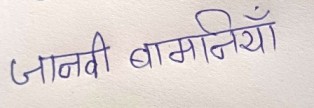 जानवी बामनियाँ